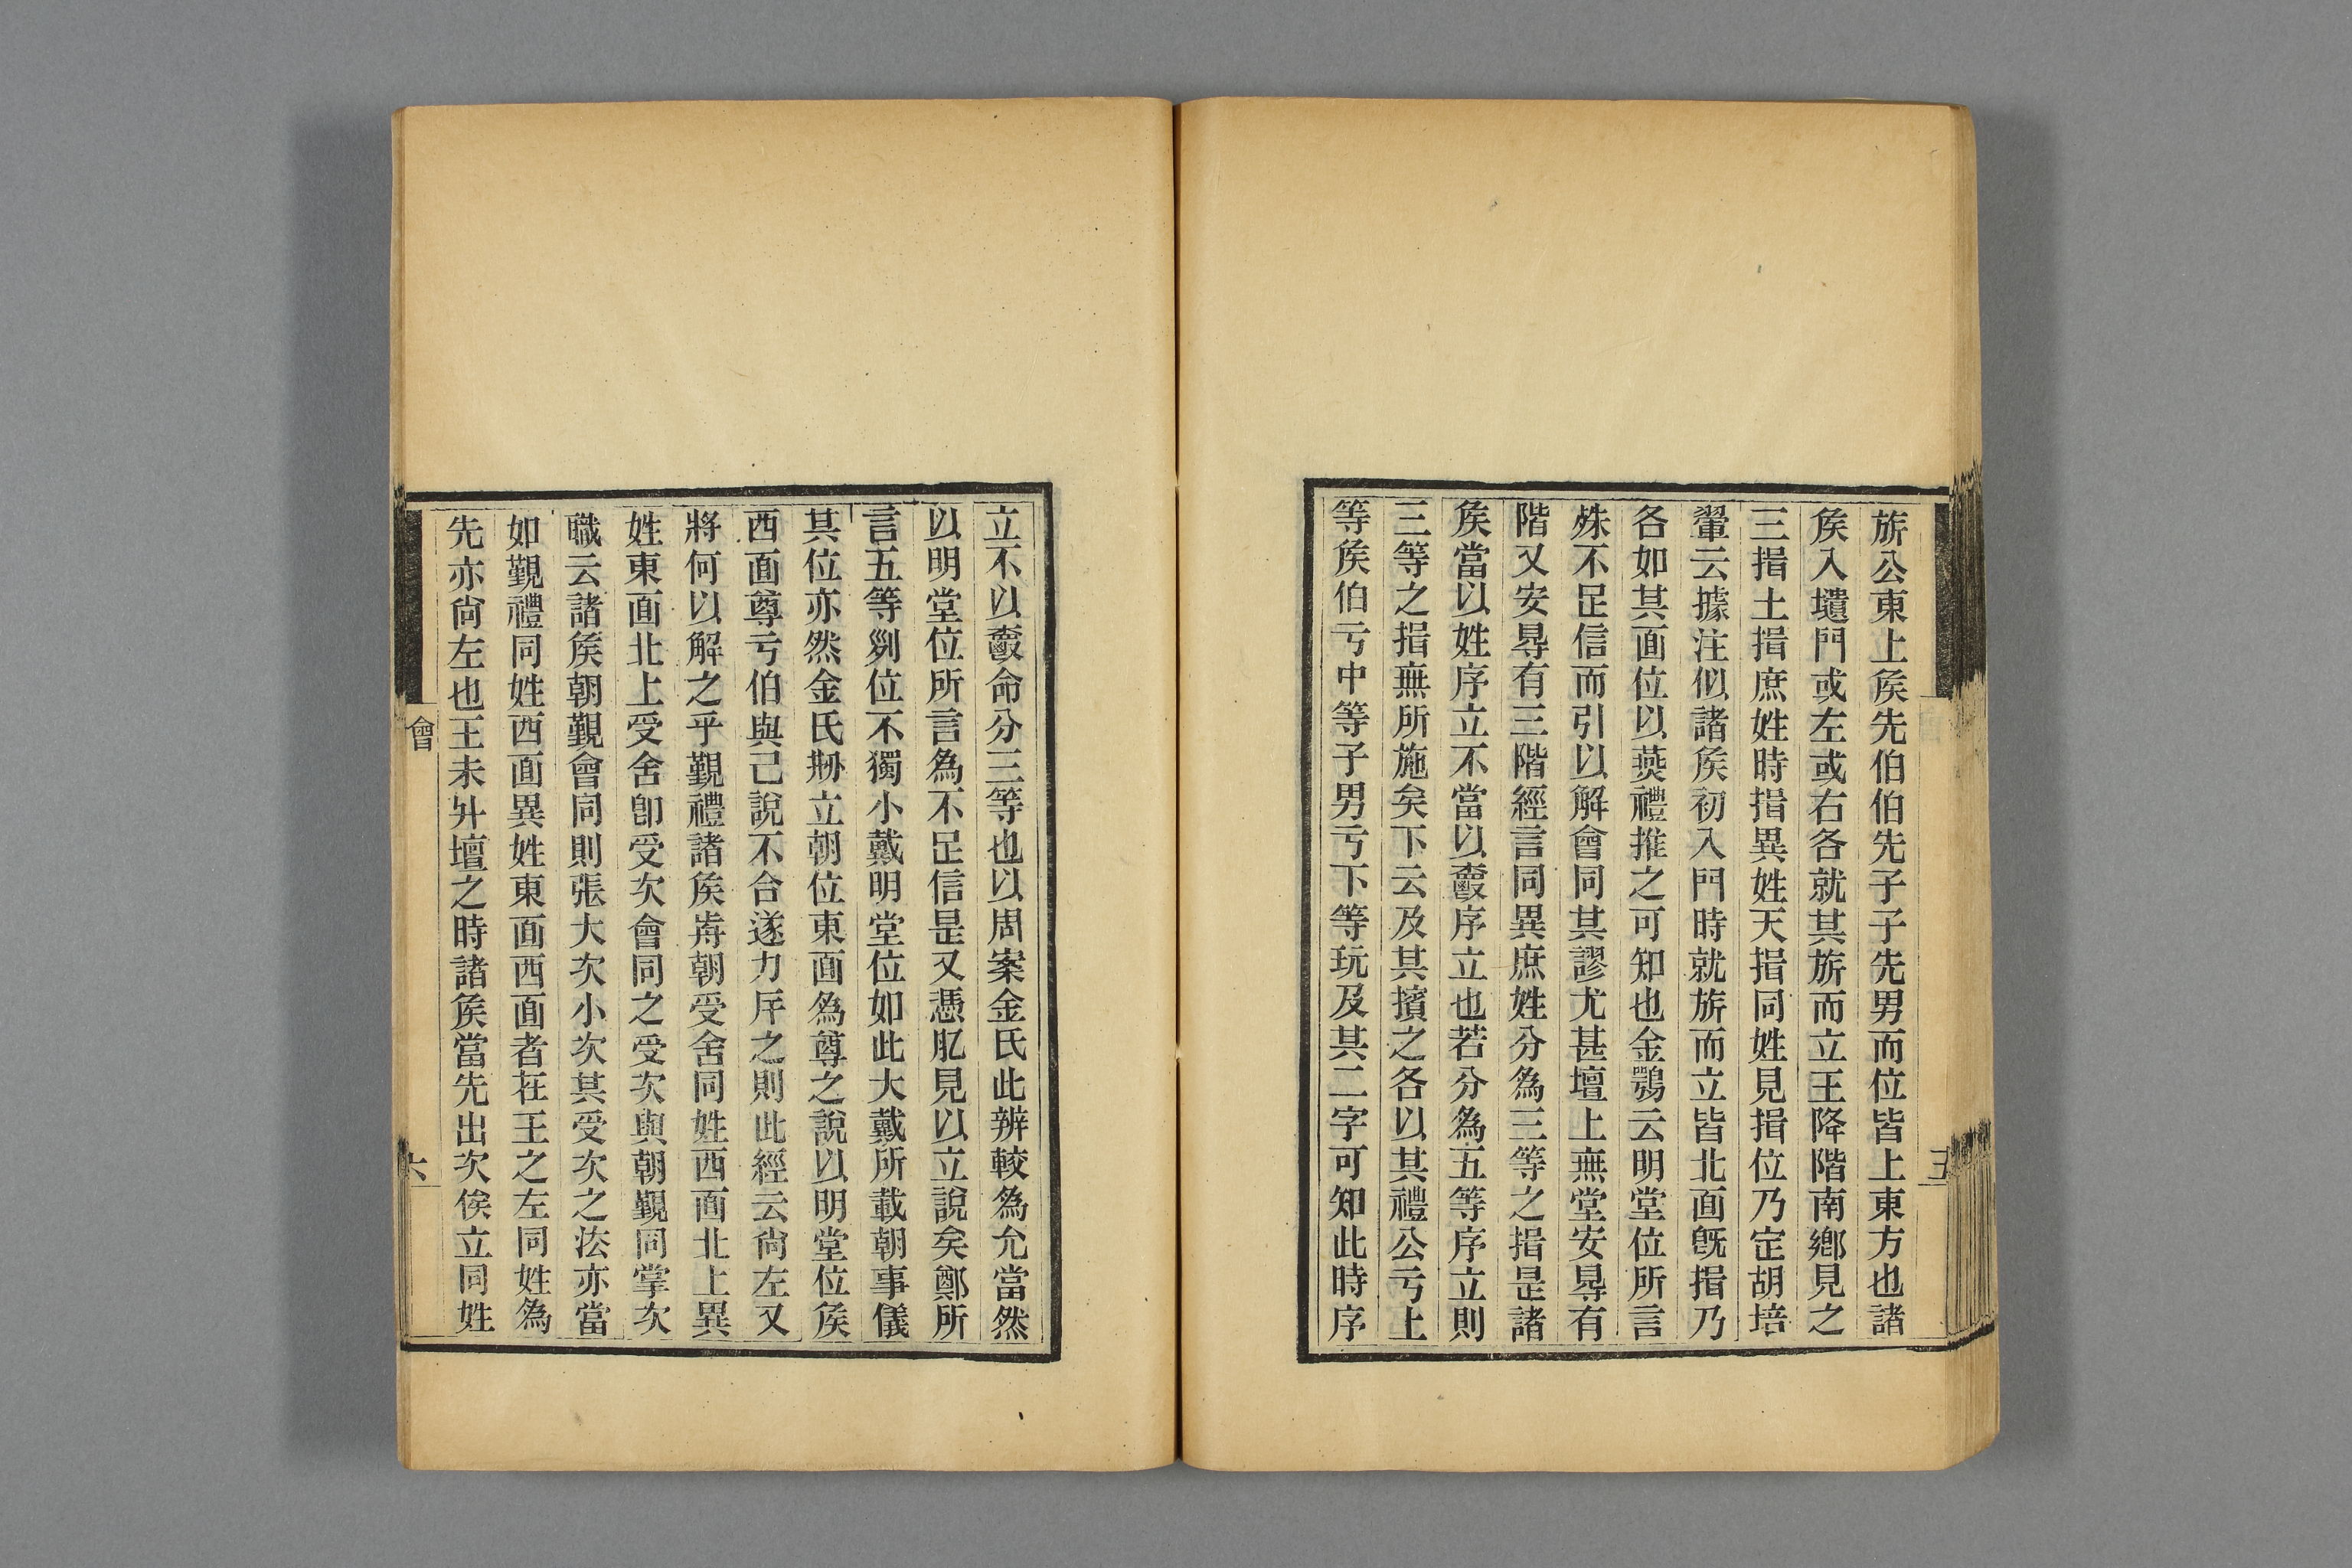 旂公東上矦先伯伯先子子先男而位皆上東方也諸
矦入壝門或左或右各就其旂而立王降階南鄉見之
三揖土揖庶姓時揖異姓天揖同姓見揖位乃定胡培
翬云據注似諸矦初入門時就旂而立皆北面旣揖乃
各如其面位以燕禮推之可知也金鶚云明堂位所言
殊不足信而引以解會同其謬尤甚壇上無堂安㝵有
階又安㝵有三階經言同異庶姓分爲三等之揖是諸
矦當以姓序立不當以爵序立也若分爲五等序立則
三等之揖無所施矣下云及其擯之各以其禮公亏上
等矦伯亏中等子男亏下等玩及其二字可知此時序
五
立不以爵命分三等也以周案金氏此辨較爲允當然
以明堂位所言爲不足信是又憑肊見以立說矣鄭所
言五等𠛱位不獨小戴明堂位如此大戴所載朝事儀
其位亦然金氏刱立朝位東面爲尊之說以明堂位矦
西面尊亏伯與己說不合遂力斥之則此經云尙左又
將何以解之乎覲禮諸矦歬朝受舍同姓西面北上異
姓東面北上受舍卽受次會同之受次與朝覲同掌次
職云諸矦朝覲會同則張大次小次其受次之法亦當
如覲禮同姓西面異姓東面西面者在王之左同姓爲
先亦尙左也王未升壇之時諸矦當先出次俟立同姓
會
六